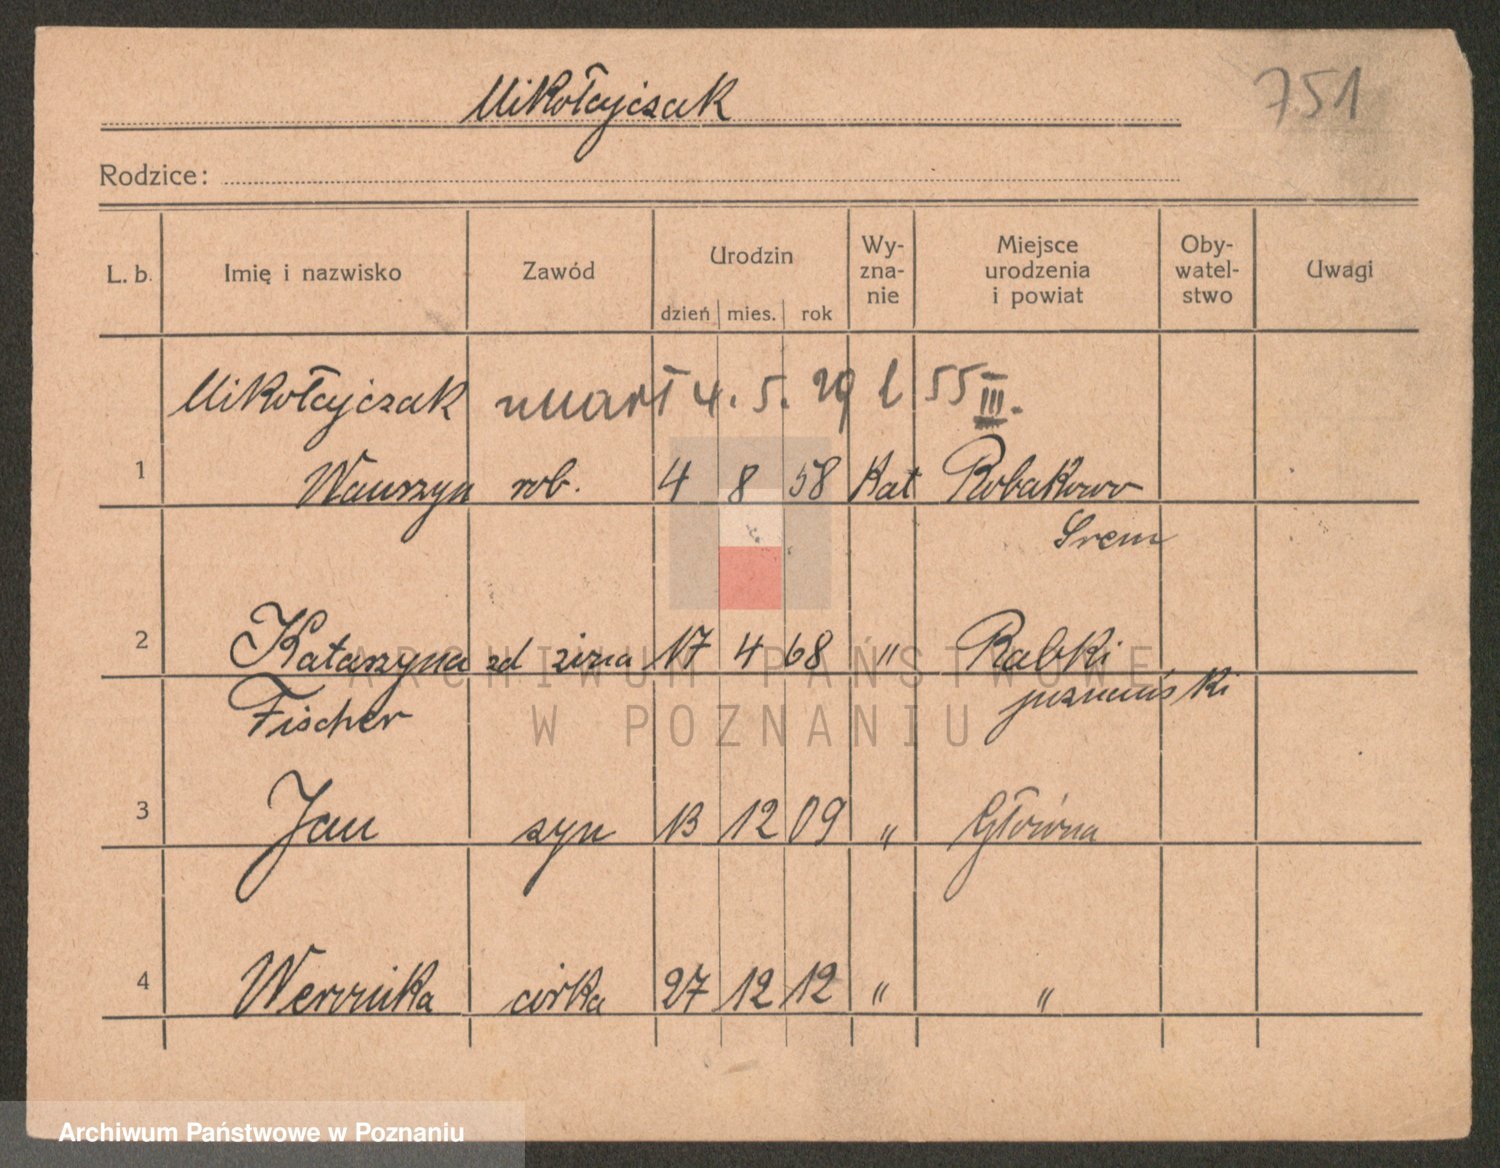 Mikołajczak
751
Rodzice:
L. b. Imię i nazwisko Zawód Urodzin dzień mies. rok Wy-zna-nie Miejsce urodzenia i powiat Oby-watel-stwo Uwagi
Mikołajczak umarł 4. 5. 29 l 55 III.
1 Wawrzyn rob. 4 8 58 Kat Robakowo
Śrem
2 Katarzyna zd żona 17 4 68 " Babki
Fischer poznański
3 Jan syn 13 12 09 " Główna
4 Weronika córka 27 12 12 " "
ARCHIWUM PAŃSTWOWE
W POZNANIU
Archiwum Państwowe w Poznaniu